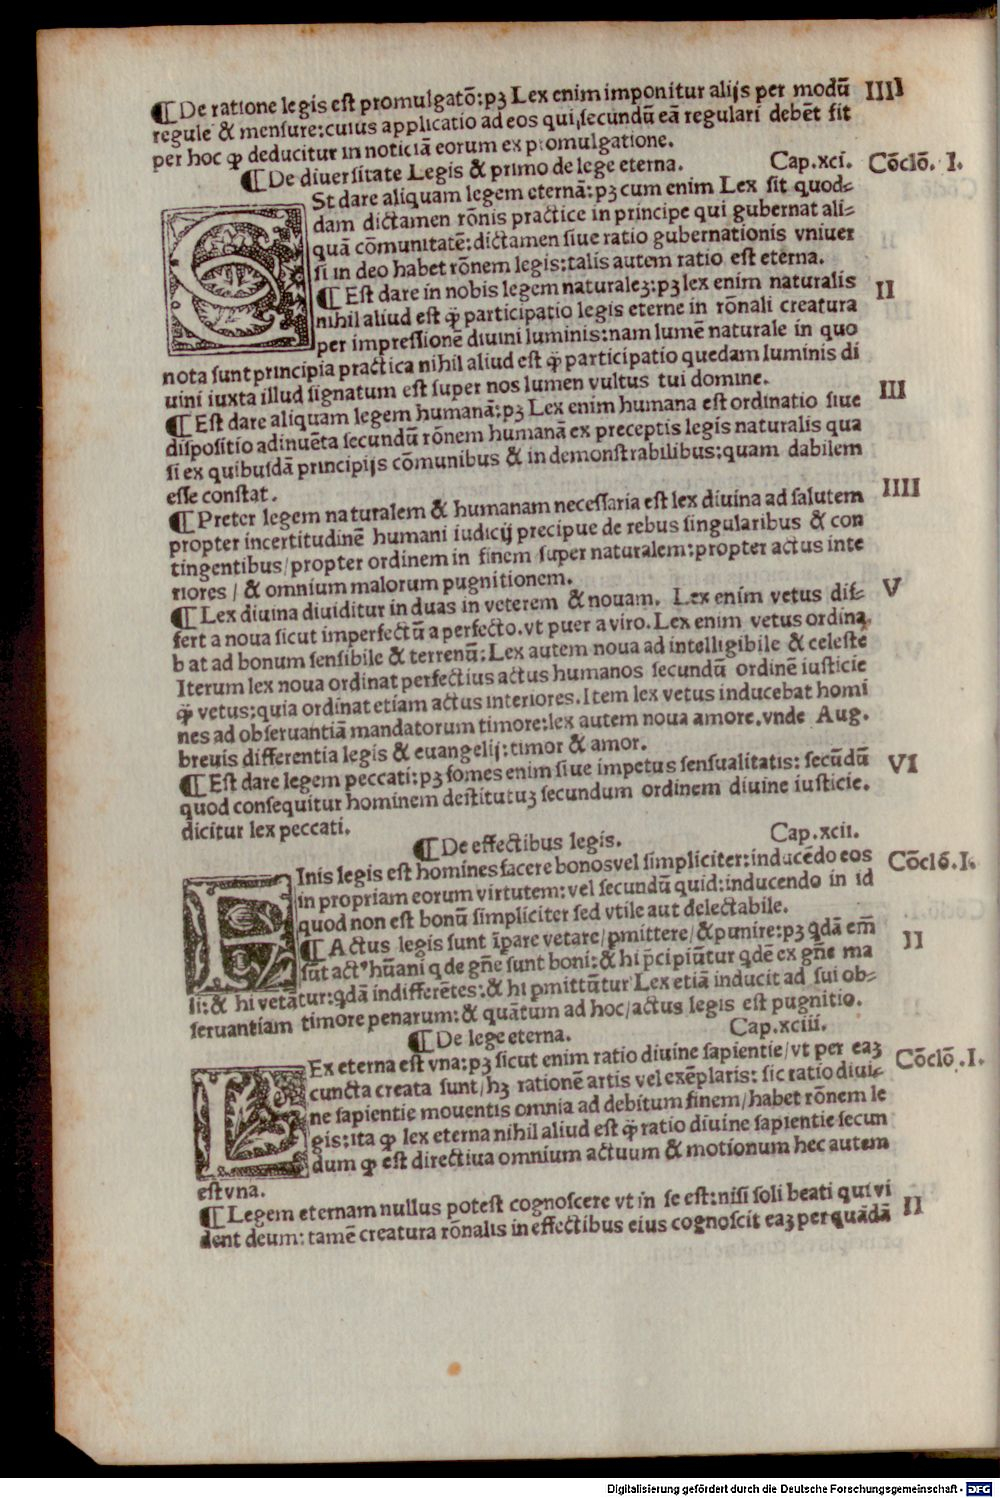 ¶De ratione legis eſt promulgatō:pꝫ Lex enim imponitur alijs per modū IIII
regule & menſure:cuius applicatio ad eos qui ſecundū eā regulari debēt fit
per hoc ꝙ deducitur in noticiā eorum ex promulgatione.
¶De diuerſitate Legis & primo de lege eterna. Cap.xci. Cōclō. I.
ESt dare aliquam legem eternā:pꝫ cum enim Lex ſit quod-
dam dictamen rōnis practice in principe qui gubernat ali-
quā cōmunitatē:dictamen ſiue ratio gubernationis vniuer
ſi in deo habet rōnem legis:talis autem ratio eſt eterna.
¶Eſt dare in nobis legem naturaleꝫ:pꝫ lex enim naturalis II
nihil aliud eſt ꝙ̄ participatio legis eterne in rōnali creatura
per impreſſionē diuini luminis:nam lumē naturale in quo
nota ſunt principia practica nihil aliud eſt ꝙ̄ participatio quedam luminis di
uini iuxta illud ſignatum eſt ſuper nos lumen vultus tui domine.
¶Eſt dare aliquam legem humanā:pꝫ Lex enim humana eſt ordinatio ſiue III
diſpoſitio adinuēta ſecundū rōnem humanā ex preceptis legis naturalis qua
ſi ex quibuſdā principijs cōmunibus & indemonſtrabilibus:quam dabilem
eſſe conſtat.
¶Preter legem naturalem & humanam neceſſaria eſt lex diuina ad ſalutem IIII
propter incertitudinē humani iudicij precipue de rebus ſingularibus & con
tingentibus/propter ordinem in finem ſuper naturalem:propter actus inte
riores / & omnium malorum pugnitionem.
¶Lex diuina diuiditur in duas in veterem & nouam. Lex enim vetus diſ- V
fert a noua ſicut imperfectū a perfecto.vt puer a viro.Lex enim vetus ordina
b at ad bonum ſenſibile & terrenū:Lex autem noua ad intelligibile & celeſte
Iterum lex noua ordinat perfectius actus humanos ſecundū ordinē iuſticie
ꝙ̄ vetus:quia ordinat etiam actus interiores.Item lex vetus inducebat homi
nes ad obſeruantiā mandatorum timore:lex autem noua amore.vnde Aug.
breuis differentia legis & euangelij:timor & amor.
¶Eſt dare legem peccati:pꝫ fomes enim ſiue impetus ſenſualitatis: ſecūdū VI
quod conſequitur hominem deſtitutuꝫ ſecundum ordinem diuine iuſticie.
dicitur lex peccati.
¶De effectibus legis. Cap.xcii.
FInis legis eſt homines facere bonos vel ſimpliciter:inducēdo eos Cōclō.I.
in propriam eorum virtutem:vel ſecundū quid:inducendo in id
quod non eſt bonū ſimpliciter ſed vtile aut delectabile.
¶Actus legis ſunt īpare vetare/ꝑmittere/&punire:pꝫ qdā em̄ II
ſūt actꝰ hūani q de gn̄e ſunt boni:& hi p̄cipiūtur qdē ex gn̄e ma
li:& hi vetātur:qdā indifferētes:& hi ꝑmittūtur Lex etiā inducit ad ſui ob-
ſeruantiam timore penarum:& quātum ad hoc/actus legis eſt pugnitio.
¶De lege eterna. Cap.xciii.
LEx eterna eſt vna:pꝫ ſicut enim ratio diuine ſapientie/vt per eaꝫ Cōclō.I.
cuncta creata ſunt/hꝫ rationē artis vel exēplaris: ſic ratio diui-
ne ſapientie mouentis omnia ad debitum finem/habet rōnem le
gis:ita ꝙ lex eterna nihil aliud eſt ꝙ̄ ratio diuine ſapientie ſecun
dum ꝙ eſt directiua omnium actuum & motionum hec autem
eſt vna.
¶Legem eternam nullus poteſt cognoſcere vt in ſe eſt:niſi ſoli beati qui vi II
dent deum: tamē creatura rōnalis in effectibus eius cognoſcit eaꝫ per quādā
Digitalisierung gefördert durch die Deutsche Forschungsgemeinschaft - DFG